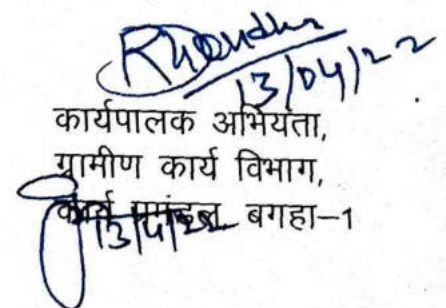 13/04/22
कार्यपालक अभियंता,
ग्रामीण कार्य विभाग,
कार्य प्रमंडल, बगहा-1
13/4/22